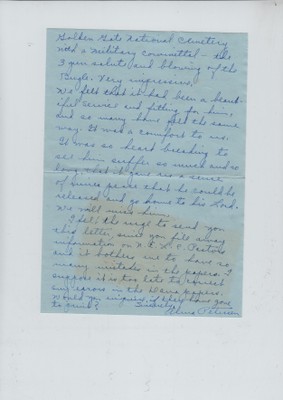 Golden Gate National Cemetery
with a Military committal - the
3 gun salute and blowing of the
Bugle. Very impressive.
We felt that it had been a beaut-
iful service and fitting for him,
and so many have felt the same
way. It was a comfort to us.
It was so heard breaking to
see him suffer so much and so
long that it gave us a sense
of inner peace that he could be
released and go home to his Lord.
We will miss him.
I felt the urge to send you
this letter, since you file away
information on N. E. L. C. Pastors
and it bothers me to have so
many mistakes in the papers. I
suppose it is too late to correct
any errors on the papers.
Would you inquire, if they have gone
to print? Sincerely,